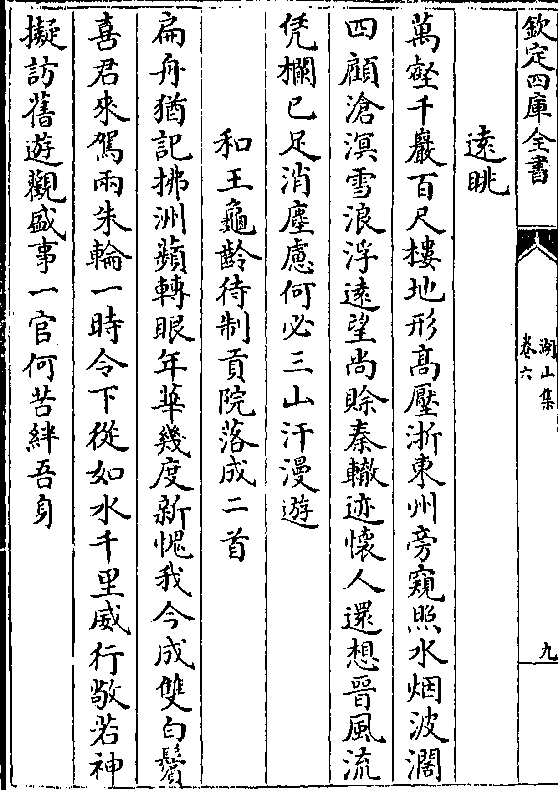 欽定四庫全書
湖山集
卷六
九
遠眺
萬壑千巖百尺樓地形高壓浙東州旁窺照水烟波濶
四顧滄溟雪浪浮遠望尚賒秦轍迹懷人還想晉風流
凭欄已足消塵慮何必三山汗漫遊
和王龜齡待制貢院落成二首
扁舟猶記拂洲蘋轉眼年華幾度新愧我今成雙白鬢
喜君來駕兩朱輪一時令下從如水千里威行敬若神
擬訪舊遊觀盛事一官何苦絆吾身